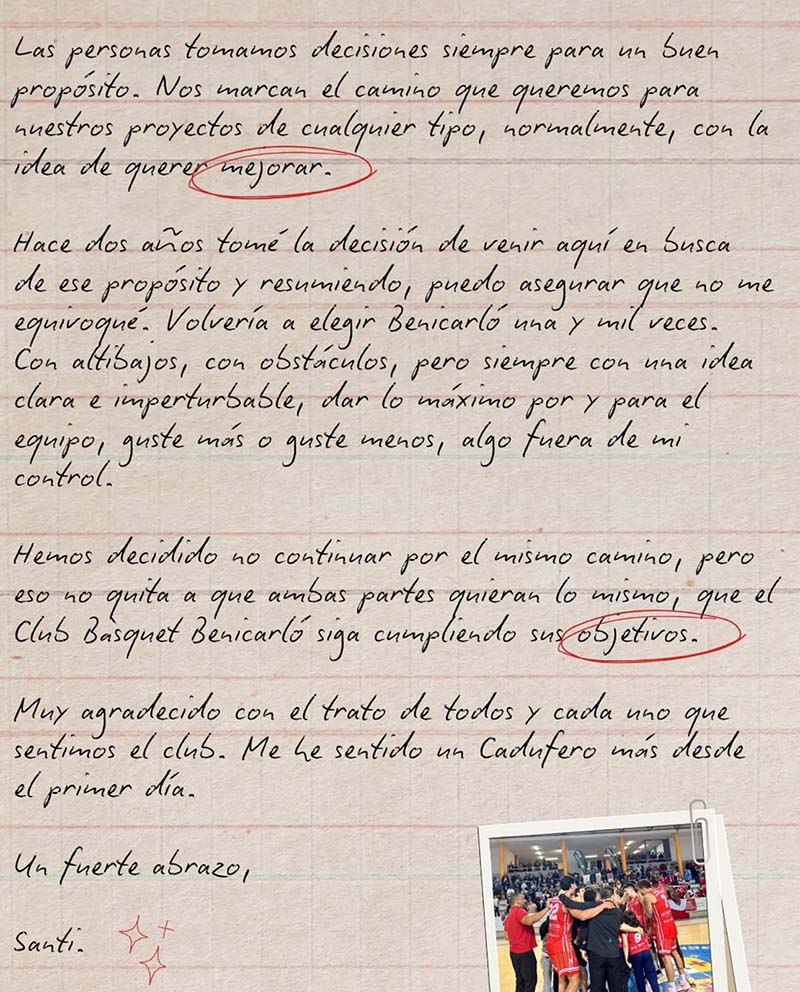 Las personas tomamos decisiones siempre para un buen
propósito. Nos marcan el camino que queremos para
nuestros proyectos de cualquier tipo, normalmente, con la
idea de querer mejorar.
Hace dos años tomé la decisión de venir aquí en busca
de ese propósito y resumiendo, puedo asegurar que no me
equivoqué. Volvería a elegir Benicarló una y mil veces.
Con altibajos, con obstáculos, pero siempre con una idea
clara e imperturbable, dar lo máximo por y para el
equipo, guste más o guste menos, algo fuera de mi
control.
Hemos decidido no continuar por el mismo camino, pero
eso no quita a que ambas partes quieran lo mismo, que el
Club Bàsquet Benicarló siga cumpliendo sus objetivos.
Muy agradecido con el trato de todos y cada uno que
sentimos el club. Me he sentido un Cadufero más desde
el primer día.
Un fuerte abrazo,
Santi.